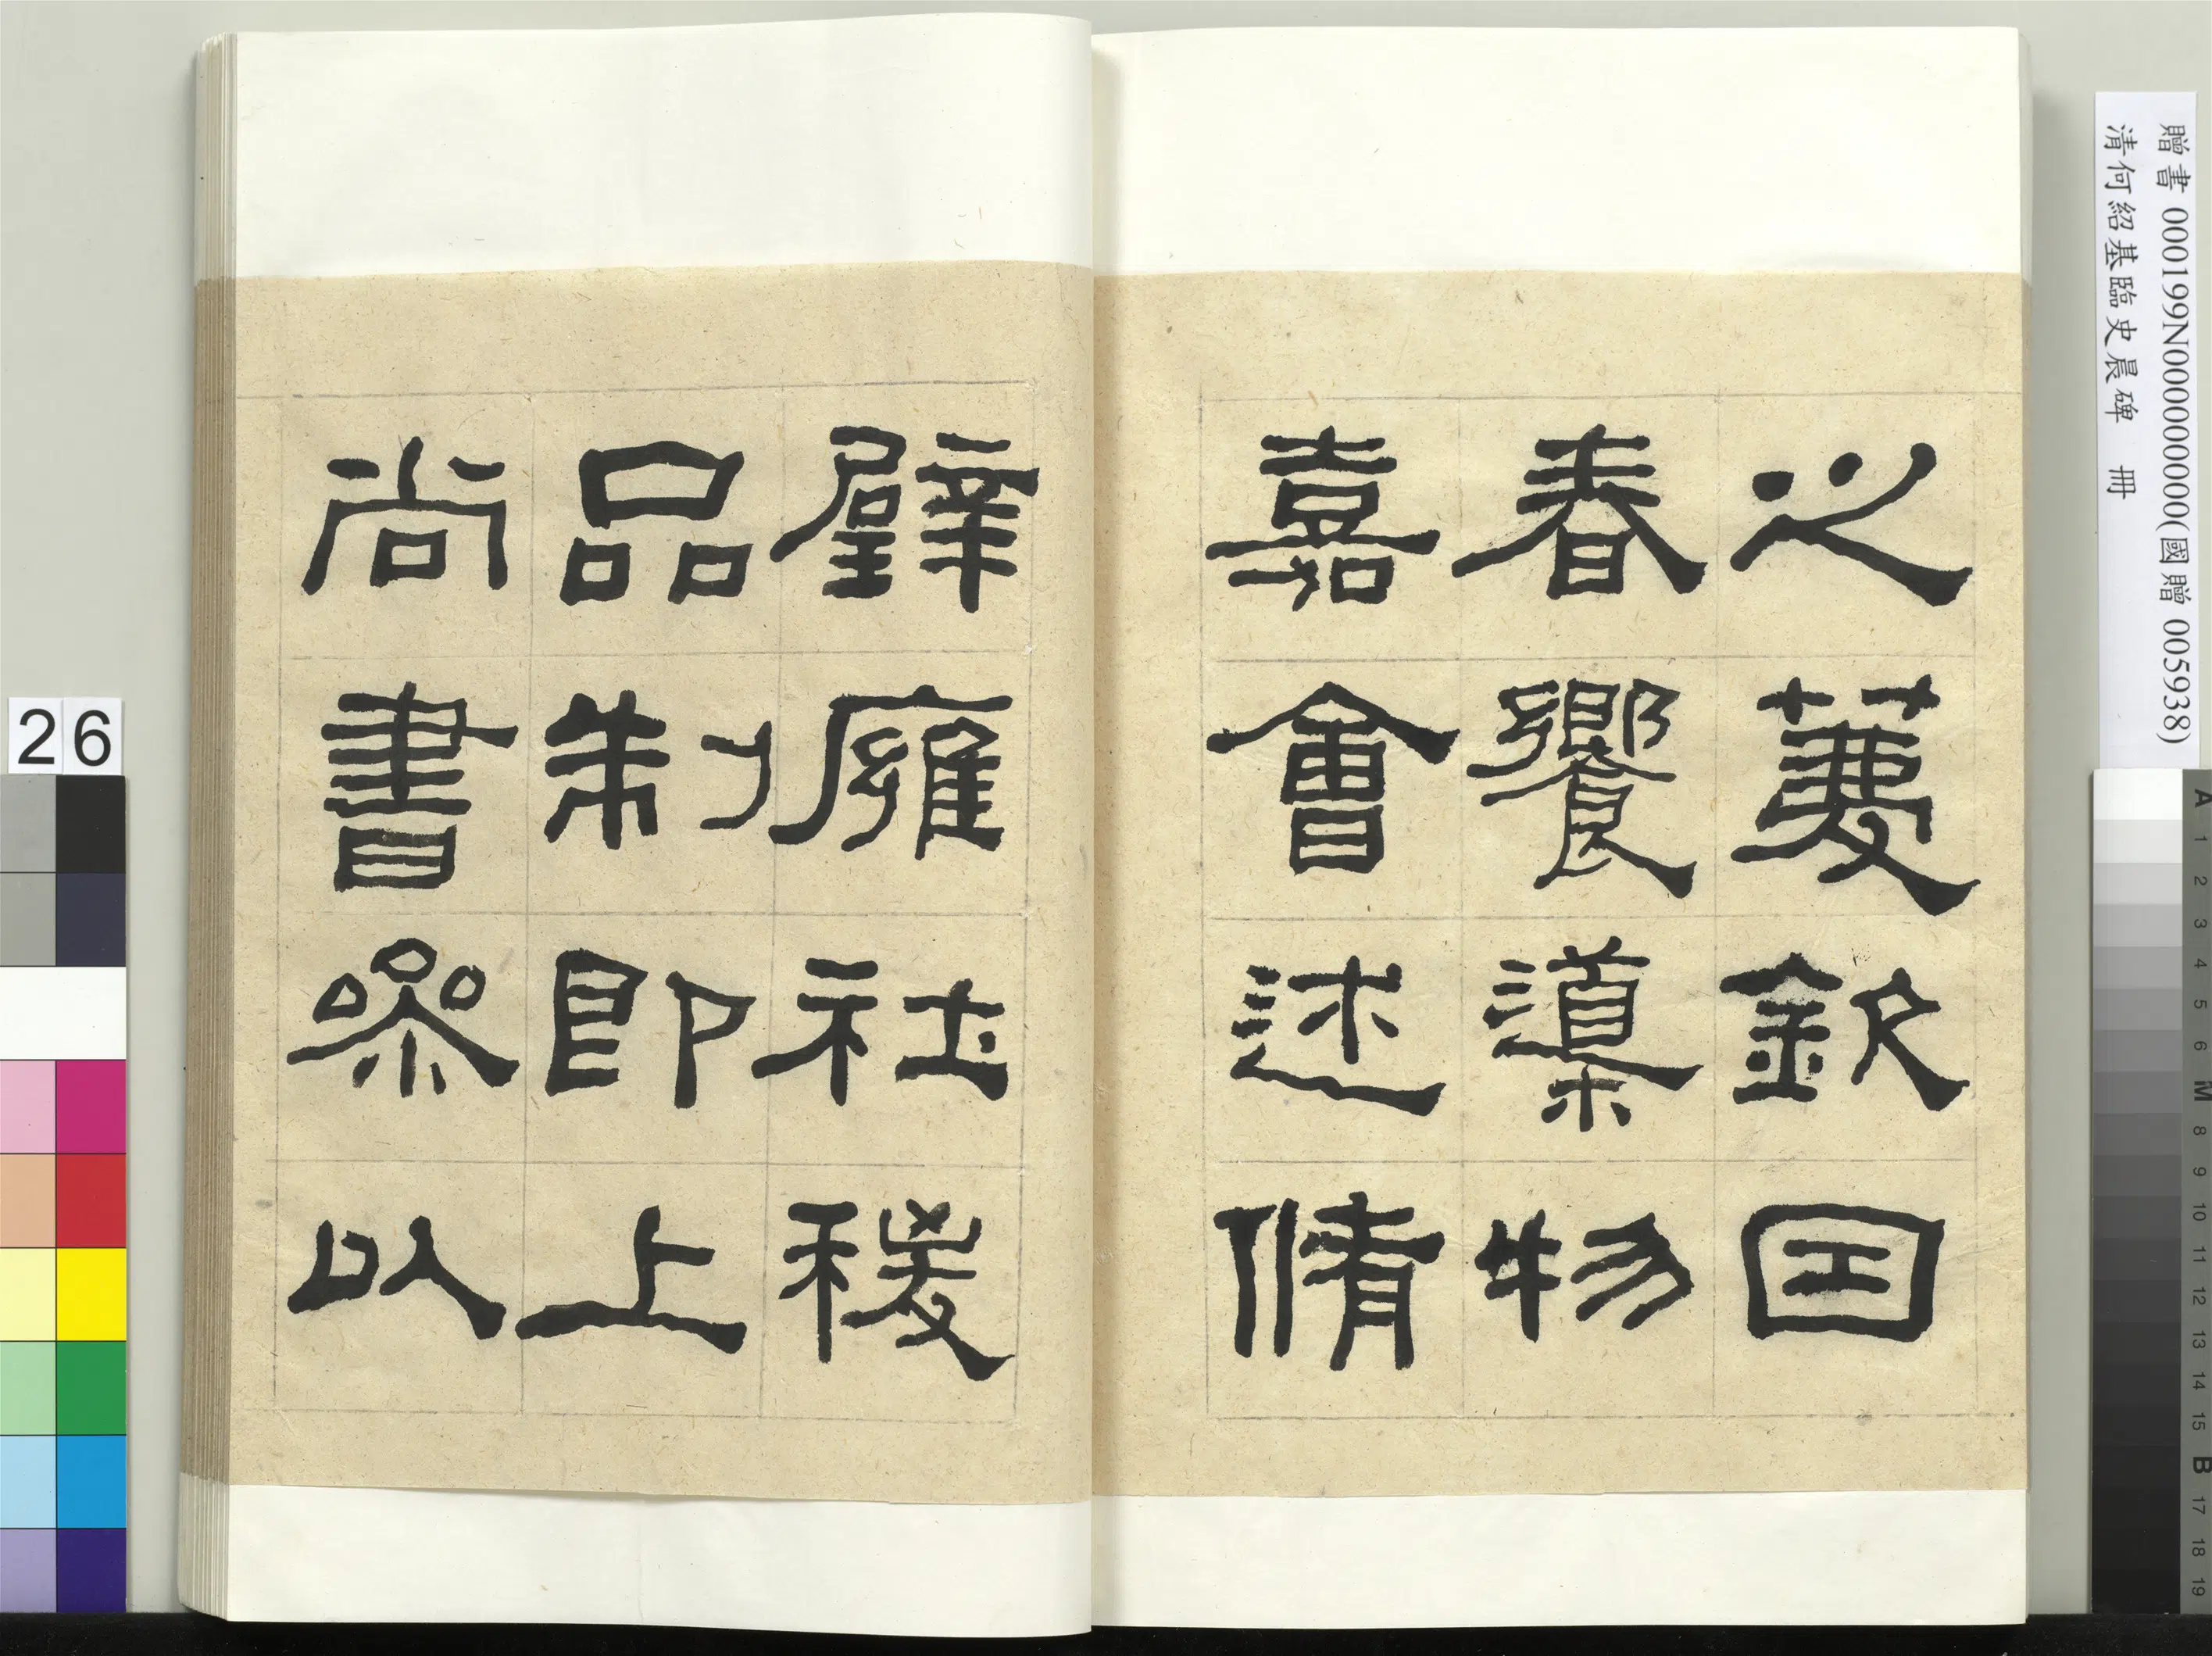 之薦欽因
春饗導物
嘉會述脩
璧廱社稷
品制即上
尚書參以
贈書 000199N000000000(國贈 005938)
清何紹基臨史晨碑 冊
26
A 1 2 3 4 5 6 M 8 9 10 11 12 13 14 15 B 17 18 19